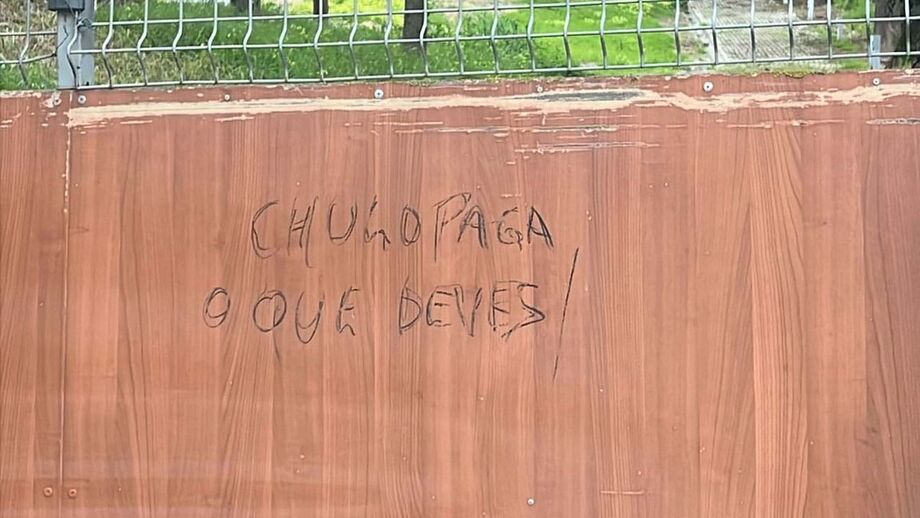 CHULO PAGA
O QUE DEVES/